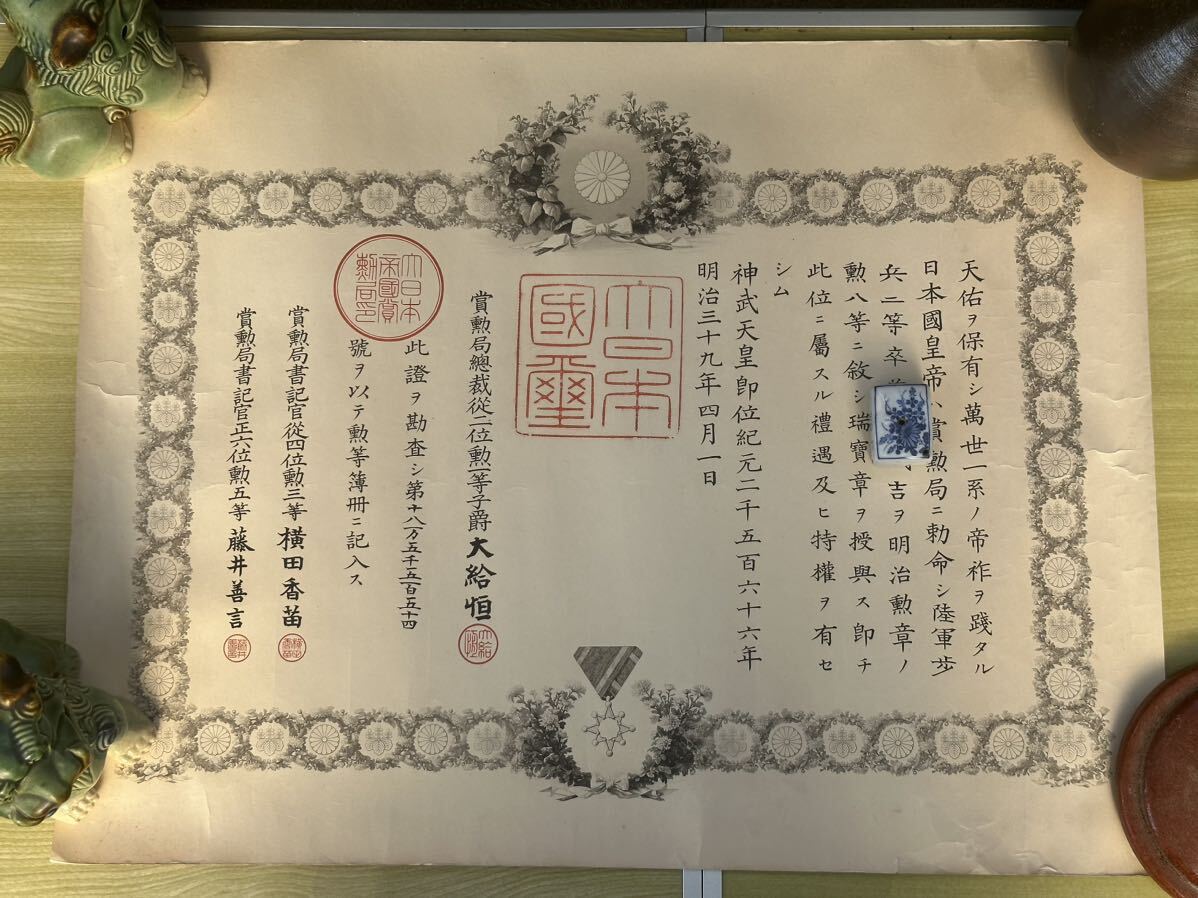 天佑ヲ保有シ萬世一系ノ帝祚ヲ踐タル
日本國皇帝ハ賞勲局ニ勅命シ陸軍歩
兵二等卒 吉ヲ明治勲章ノ
勲八等ニ敘シ瑞寶章ヲ授與ス即チ
此位ニ屬スル禮遇及ヒ特權ヲ有セ
シム
神武天皇即位紀元二千五百六十六年
明治三十九年四月一日
大日本國璽
賞勲局總裁從二位勲一等子爵大給恒
此證ヲ勘査シ第十八万五千五百五十四
號ヲ以テ勲等簿册ニ記入ス
大日本帝國賞勲局印
賞勲局書記官從四位勲三等橫田香苗
賞勲局書記官正六位勲五等藤井善言